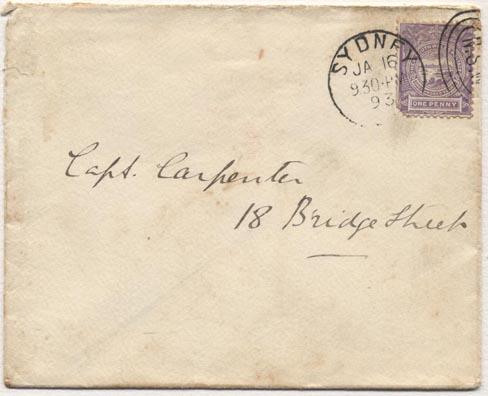 SYDNEY
JA 16
9.30 PM
93
ONE PENNY
Capt. Carpenter
18 Bridge Street